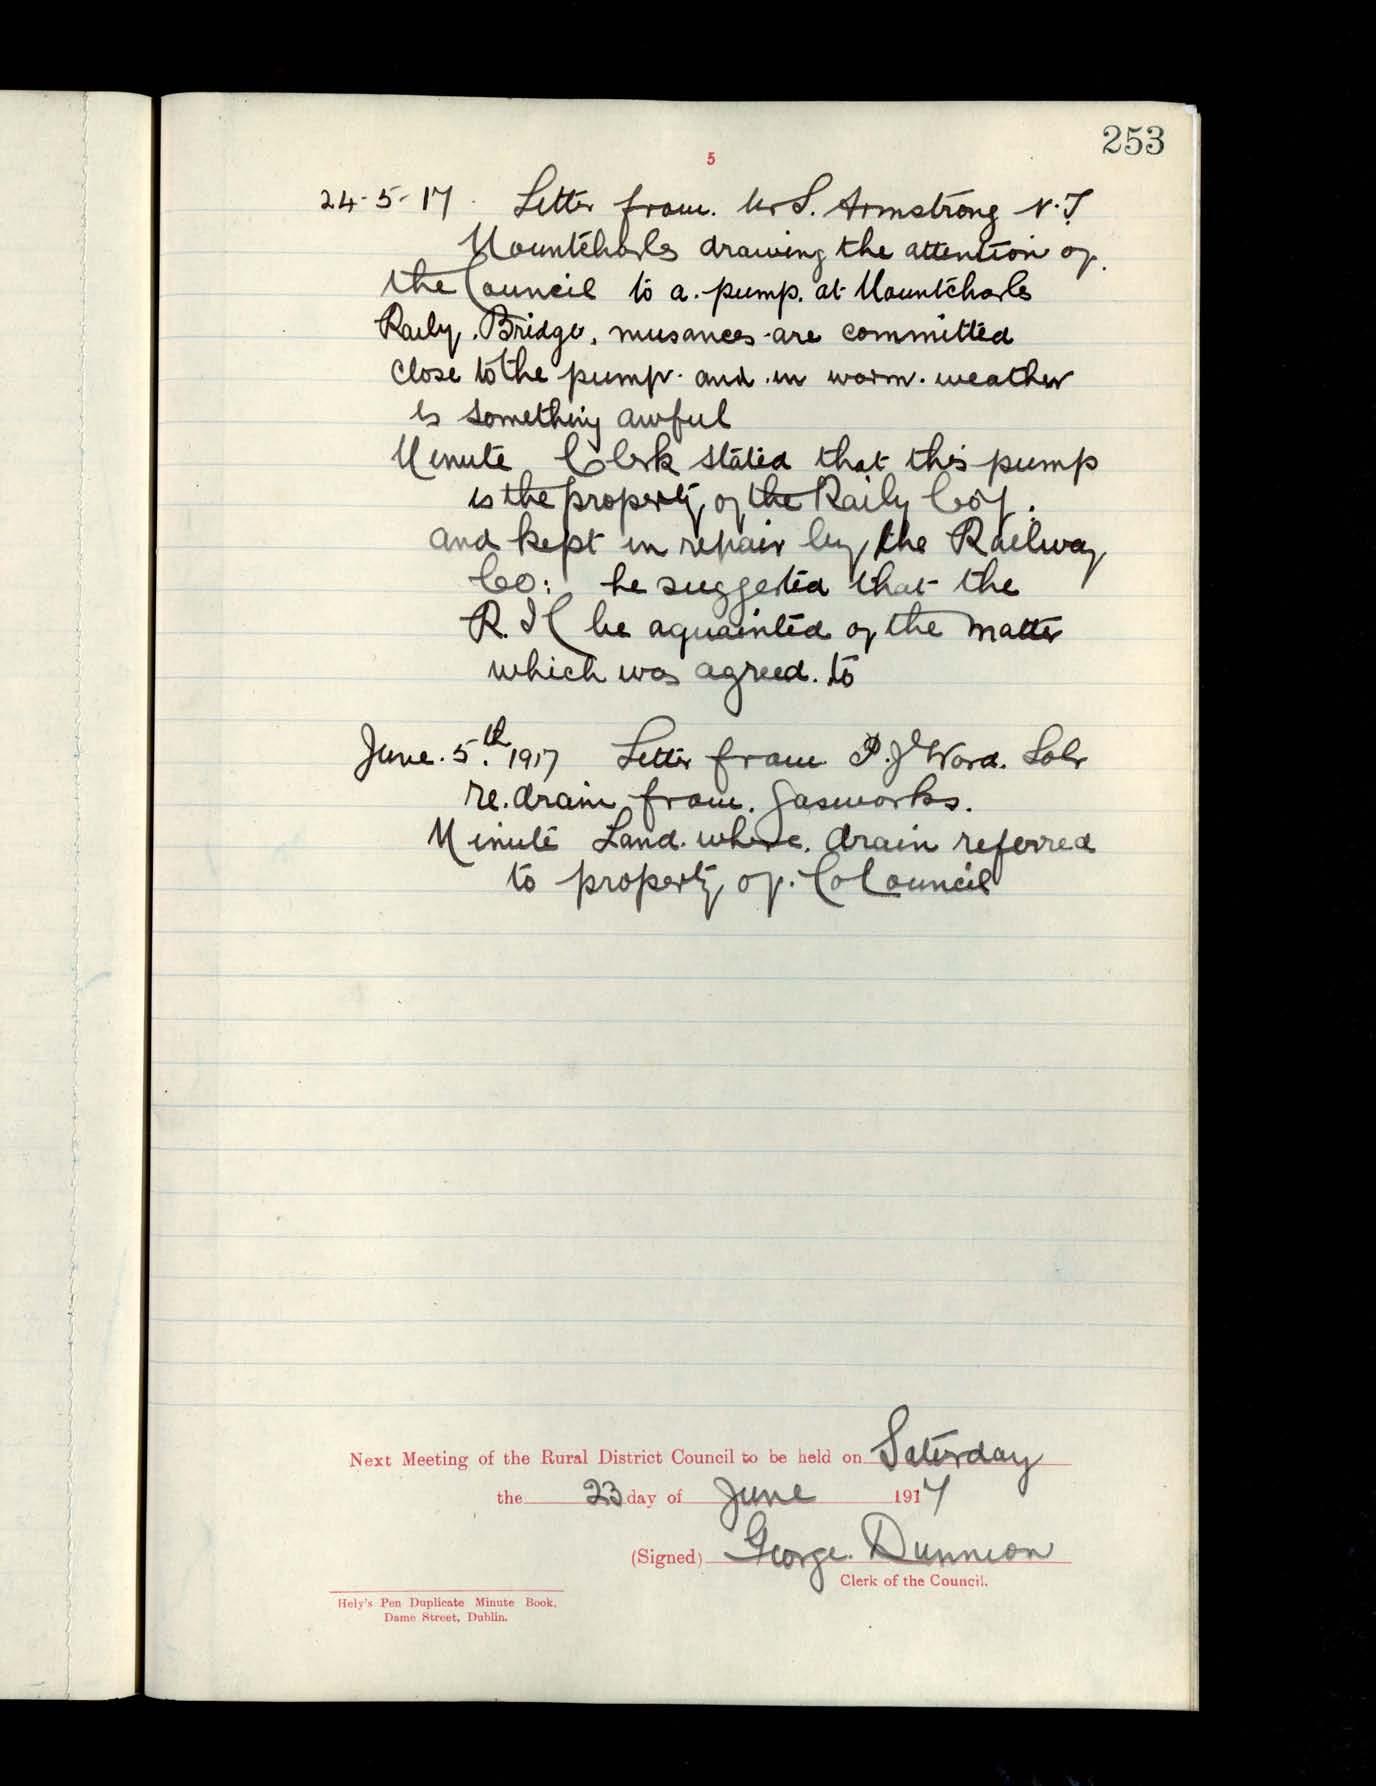 253
5
24-5-17 Letter from Mr S. Armstrong N.T
Mountcharles drawing the attention of
the Council to a pump at Mountcharles
Raily Bridge, nusances are committed
close to the pump and in warm weather
is something awful
Minute Clerk stated that this pump
is the property of the Raily Coy.
and kept in repair by the Railway
Co: he suggested that the
R.I.C be aquainted of the matter
which was agreed to
June 5th 1917 Letter from P.J. Ward Solr
re. drain from gasworks.
Minute Land where drain referred
to property of Co Council
Next Meeting of the Rural District Council to be held on Saturday
the 23 day of June 1917
(Signed) George Dunnion
Clerk of the Council.
Hely's Pen Duplicate Minute Book,
Dame Street, Dublin.